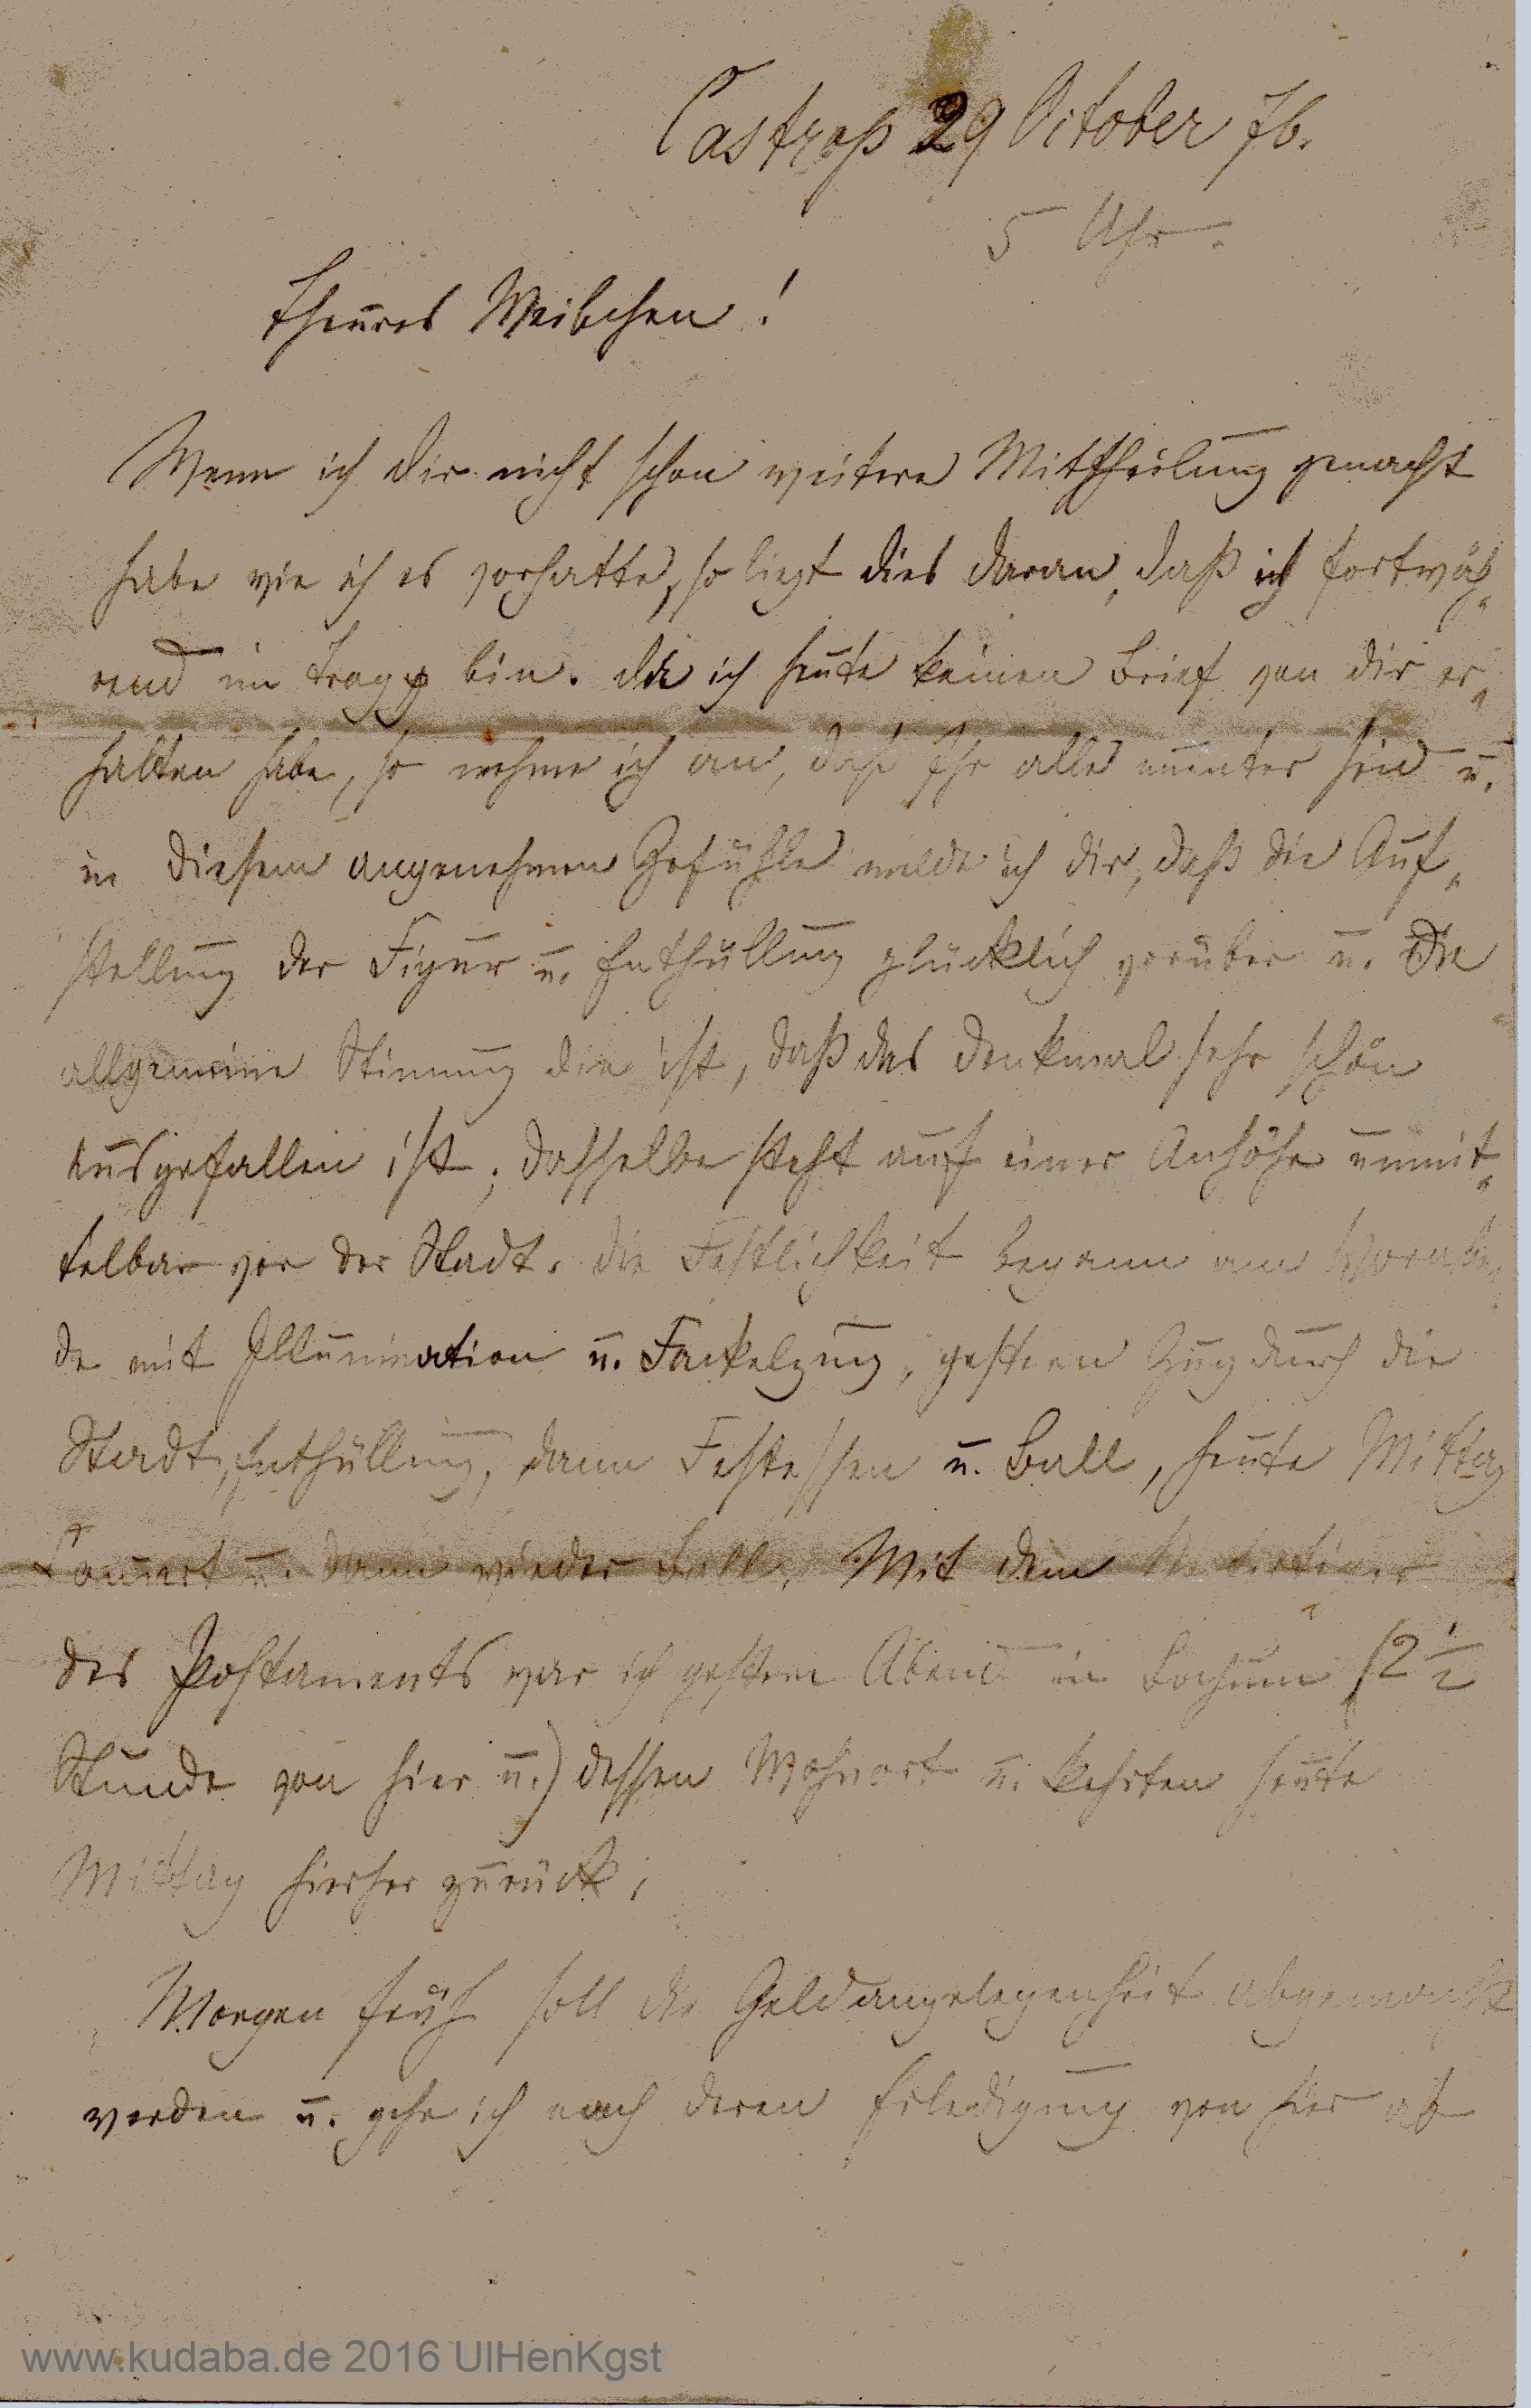 Castrop 29 October 76.
5 Uhr.
Theures Weibchen!
Wenn ich dir nicht schon weitere Mittheilung gemacht
habe wie ich es vorhatte, so liegt dies daran, daß ich fortwäh„
rend im bin. da ich heute keinen Brief von dir er„
halten habe, so nehme ich an, daß Ihr alle munter seid u.
in diesem angenehmen Gefühle melde ich dir, daß die Auf„
stellung der Figur u. Enthüllung glücklich vorüber u. die
allgemeine Stimmung die ist, daß das Denkmal sehr schön
ausgefallen ist; dasselbe steht auf einer Anhöhe unmit„
telbar vor der Stadt. die Festlichkeit begann am Voraben
de mit Illumination u. Fackelzug, gestern Zug durch die
Stadt, Enthüllung, dann Festessen u. Ball, heute Mittag
Concert u. dann wieder Ball. Mit dem
des Postaments war ich gestern Abend in Bochum (2 ½
Stunde von hier u.) dessen Wohnort u. kehrten heute
Mittag hierher zurück;
Morgen früh soll die Geldangelegenheit abgemacht
werden u. gehe ich nach deren Erledigung von hier ab
www.kudaba.de 2016 UlHenKgst